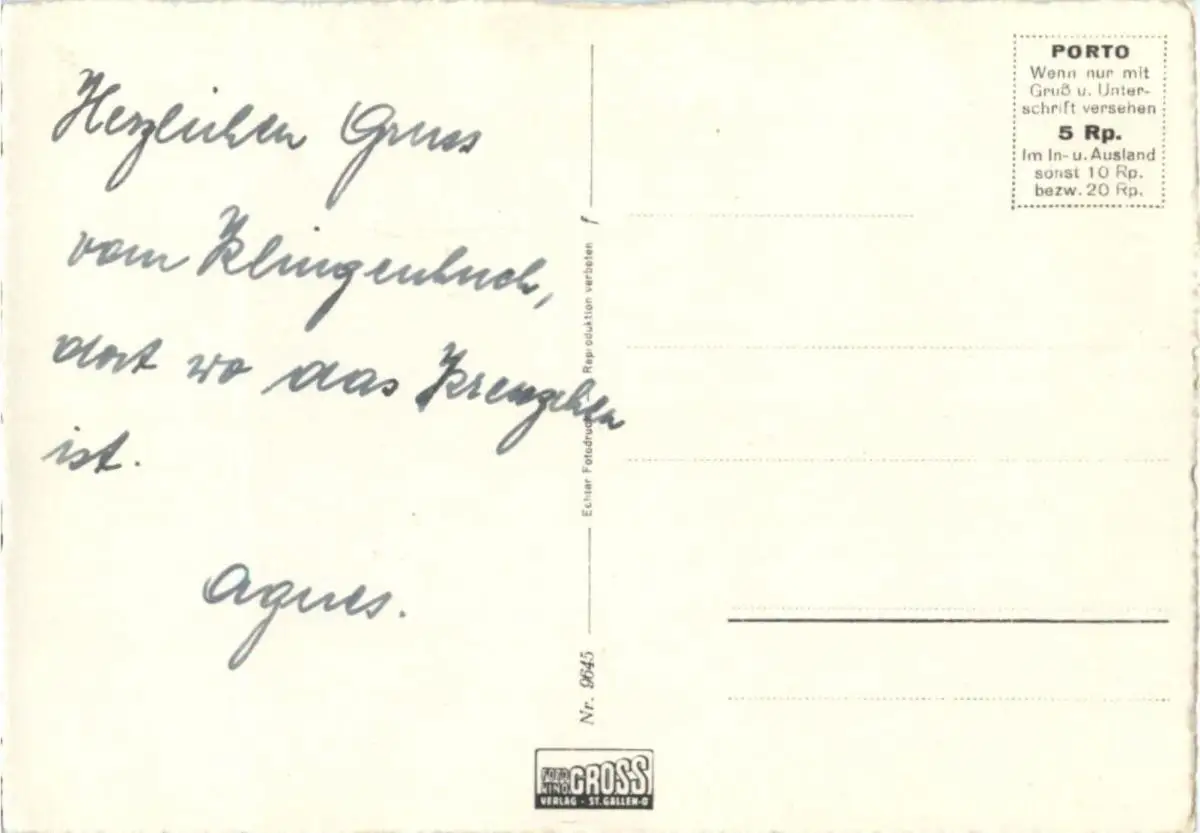 Herzlichen Gruss
vom Klingenbuch,
dort wo das Kreuzchen
ist.
Agnes.
Echter Fotodruck Reproduktion verboten
Nr. 9645
FOTO
KINO GROSS
VERLAG - ST. GALLEN-O
PORTO
Wenn nur mit
Gruß u. Unter-
schrift versehen
5 Rp.
Im In- u. Ausland
sonst 10 Rp.
bezw. 20 Rp.